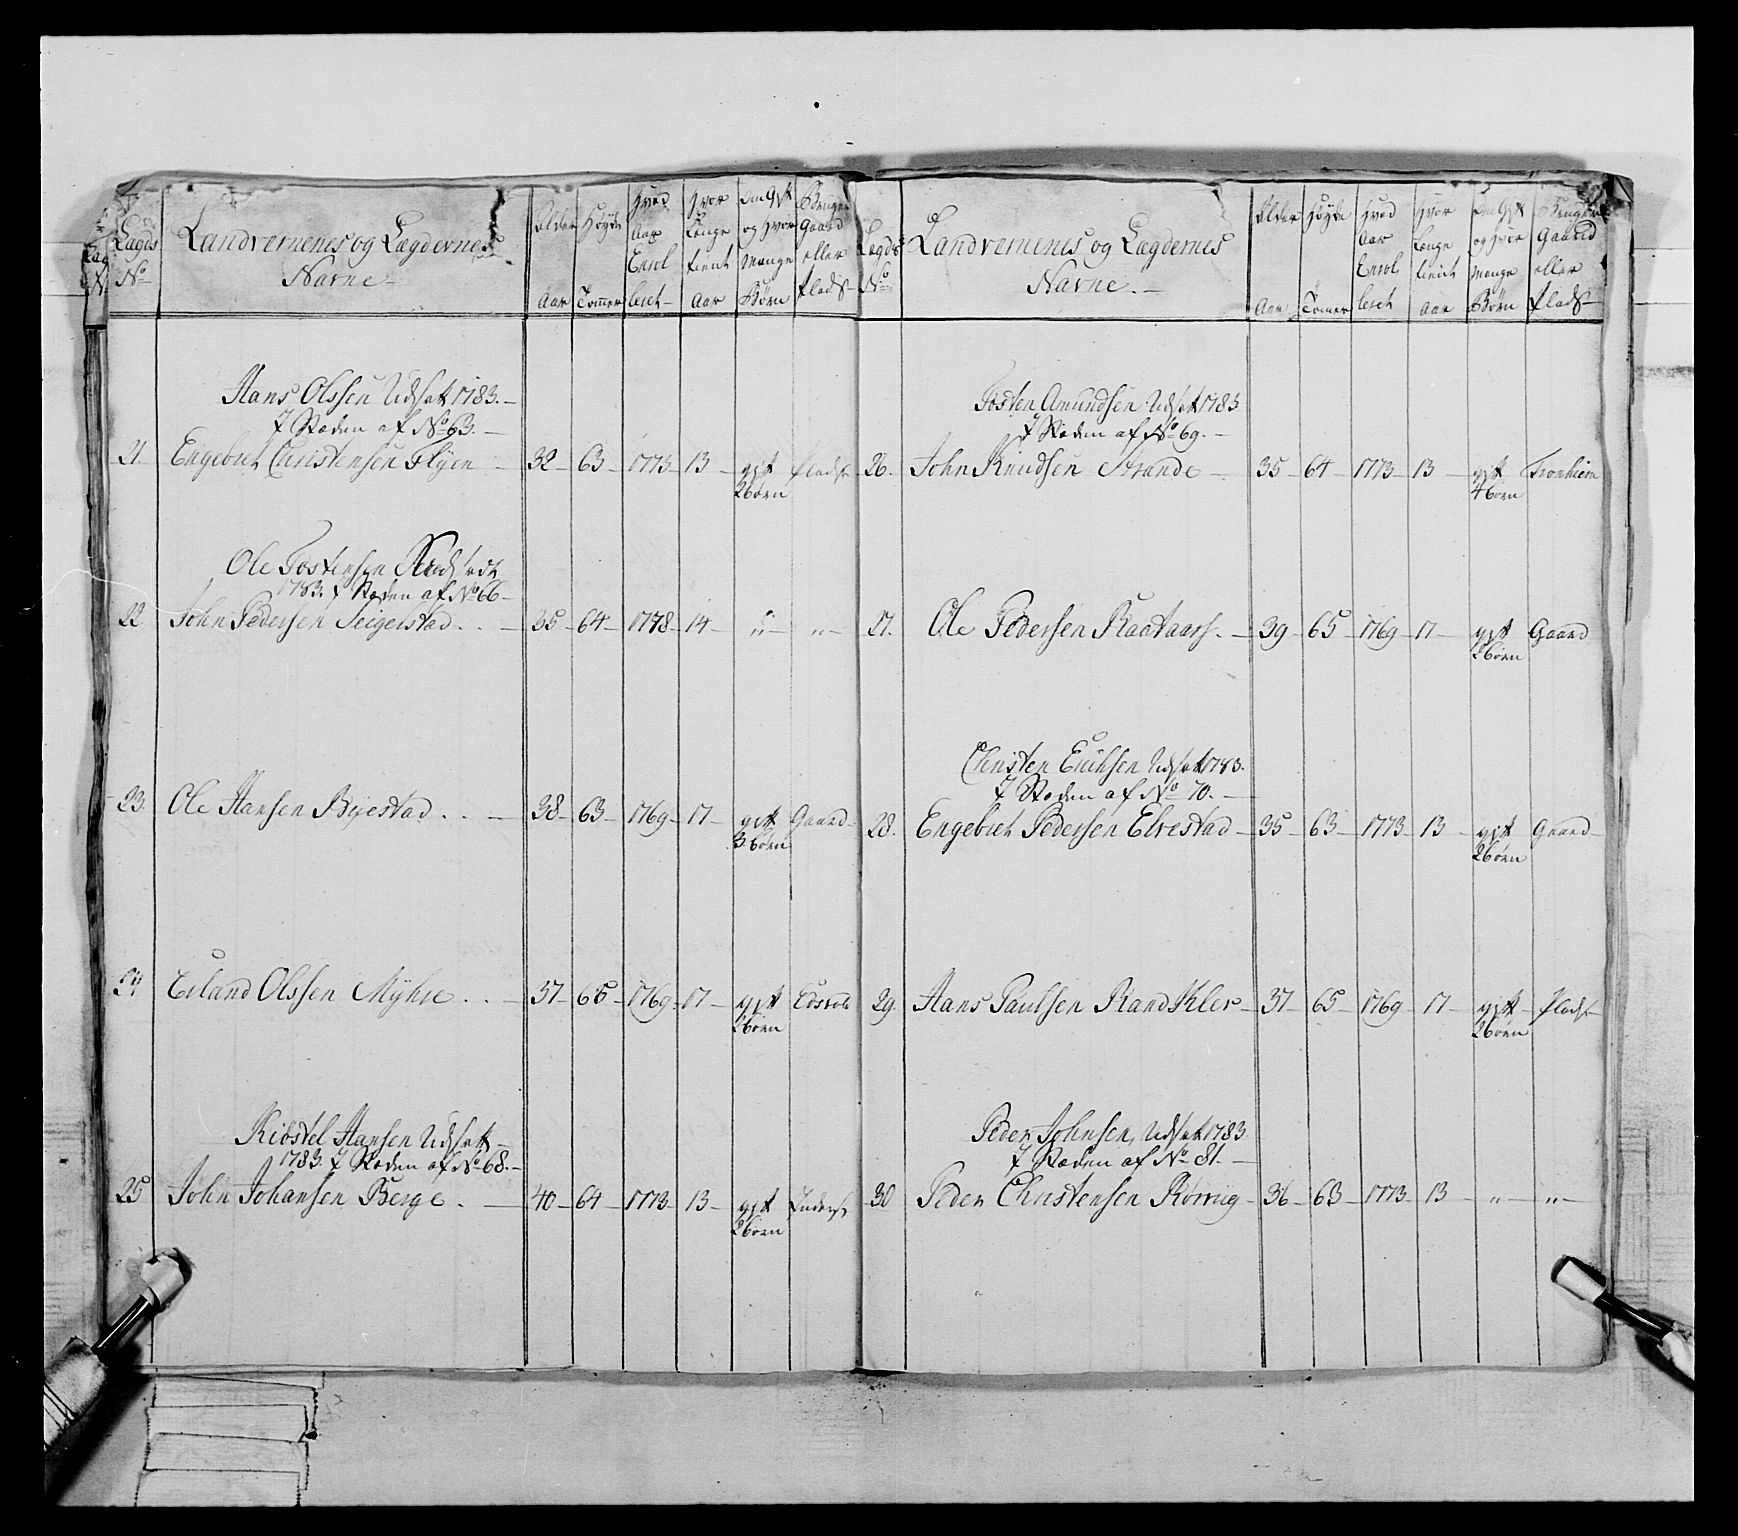 Lægds No
Landvernenes og Lægdernes Navne
Alder Aar
Høyde Tommer
Hvad Aar Enrolleret
Hvor Længe tient Aar
Om Gift og Hvor Mange Børn
Bruger Gaard eller Plads
Hans Olssen Udsatt 1783.
I Stæden af No 63.
21 Engebret Christensen Flyen 32 63 1773 13 gift 2 børn Plads
Ole Tostensen Udsatt
1783. I Stæden af No 66
22 John Pedersen Seigerstad 35 64 1778 14 " "
23 Ole Hansen Byestad 38 63 1769 17 gift 3 børn Gaard
24 Erland Olssen Myhre 37 65 1769 17 gift 2 børn
Kiøstel Hansen Udsatt
1783. I Stæden af No 68.
25 John Johansen Berge 40 64 1773 13 gift 2 børn Inderst
Lægds No
Landvernenes og Lægdernes Navne
Alder Aar
Høyde Tommer
Hvad Aar Enrolleret
Hvor Længe tient Aar
Om Gift og Hvor Mange Børn
Bruger Gaard eller Plads
Tosten Amundsen Udsatt 1783
I Stæden af No 69.
26. John Knudsen Strande 35 64 1773 13 gift 4 børn Tronhiem
27. Ole Pedersen Raataars 39 65 1769 17 gift 2 børn Gaard
Christen Erichsen Udsatt 1783.
I Stæden af No 70.
28. Engebret Pedersen Elvestad 35 63 1773 13 gift 2 børn Gaard
29. Hans Paulsen RandKlev 37 65 1769 17 gift 2 børn Plads
Peder Johnsen, Udsatt 1783.
I Stæden af No 81.
30 Peder Christensen Rørvig 36 63 1773 13 " "